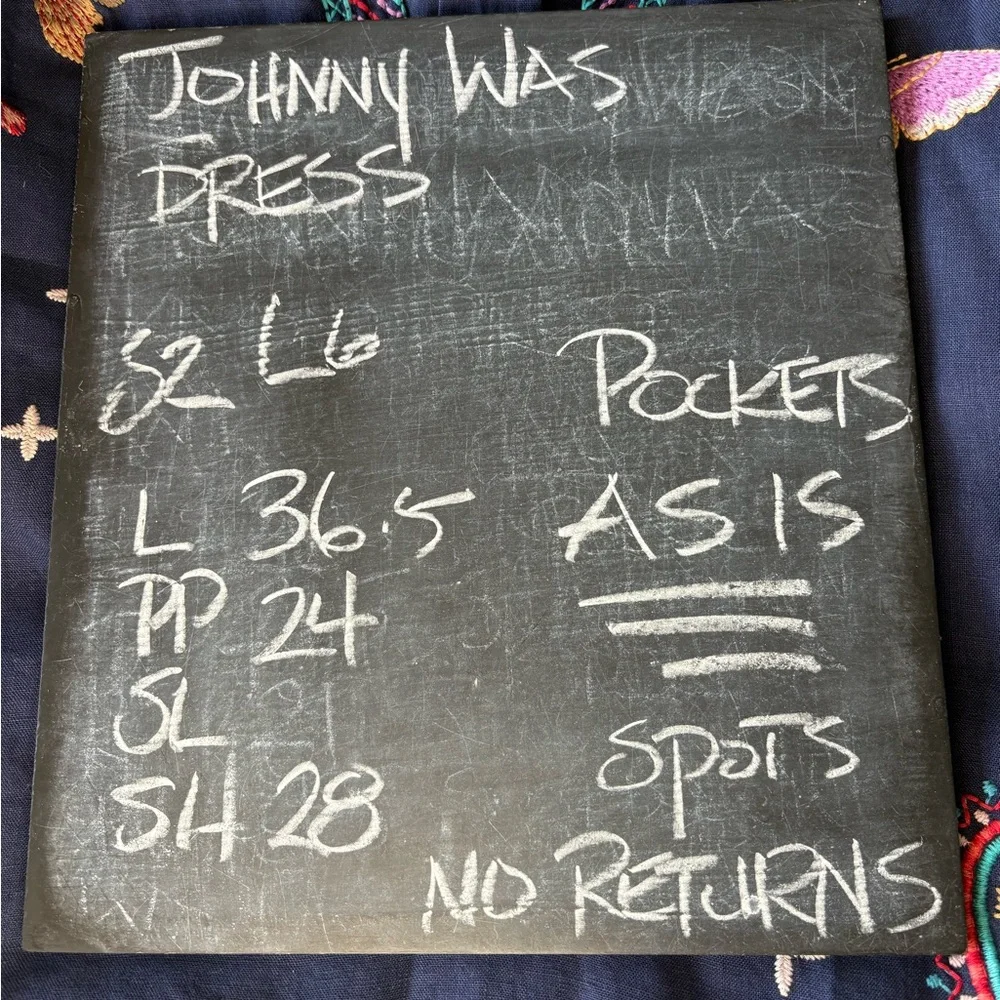 JOHNNY WAS
DRESS
SZ LG
POCKETS
L 36.5
AS IS
PP 24
SL
SPOTS
SH 28
NO RETURNS